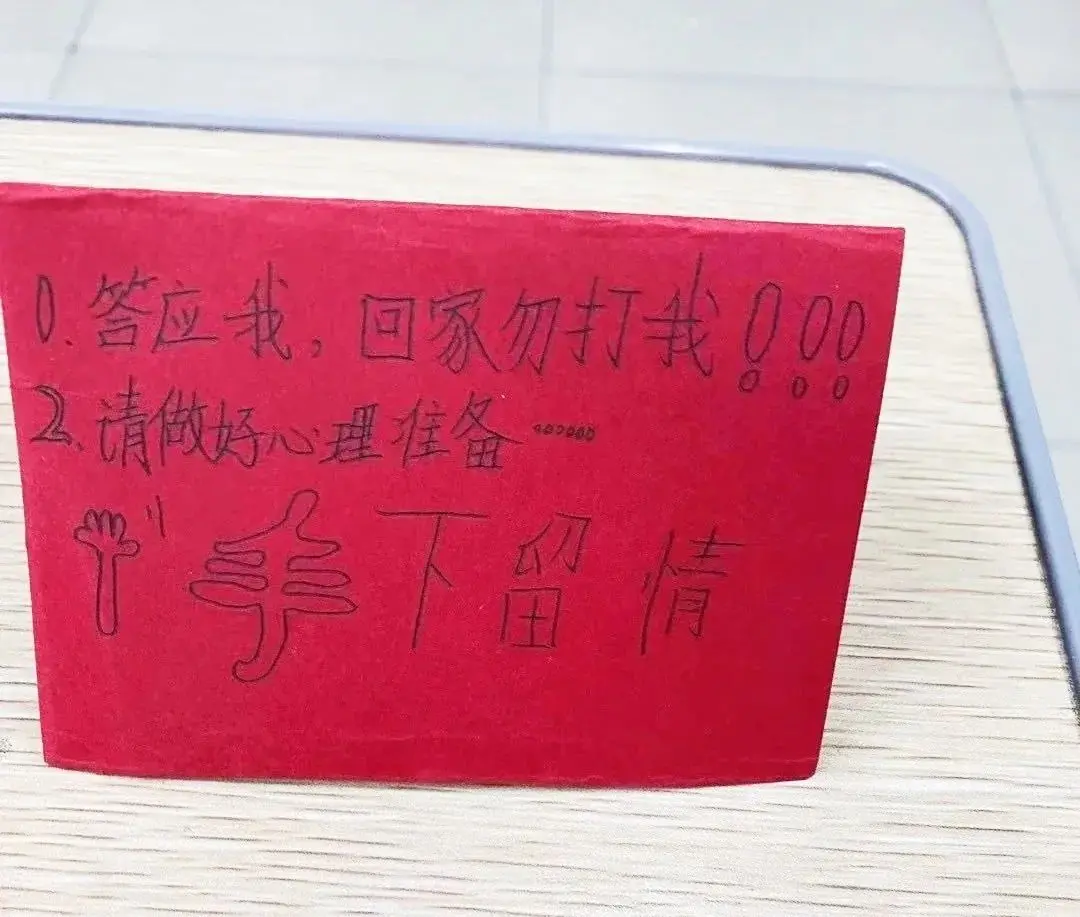 1. 答应我，回家勿打我！！！
2. 请做好心理准备……
手下留情